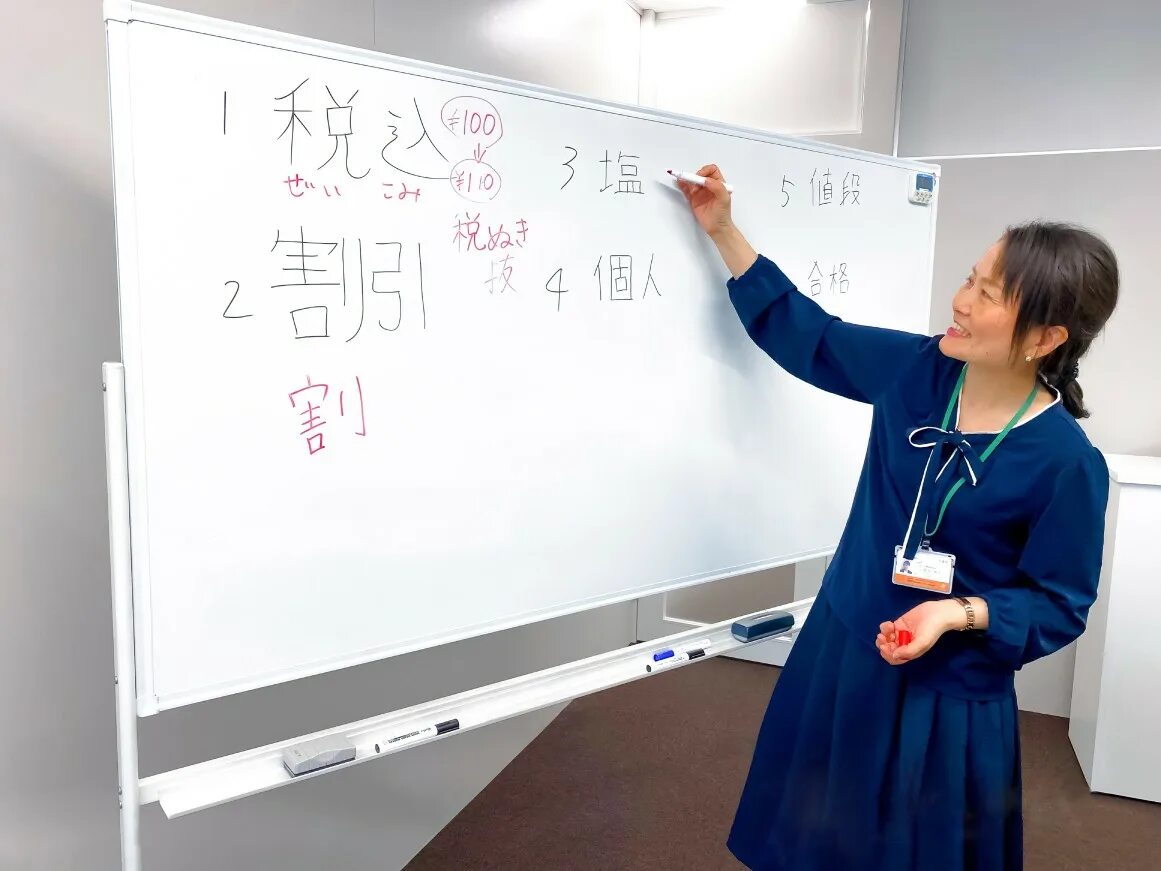 1 税込 ¥100
↓
ぜい こみ ¥110
税ぬき
抜
2 割引
割
3 塩
4 個人
5 値段
合格